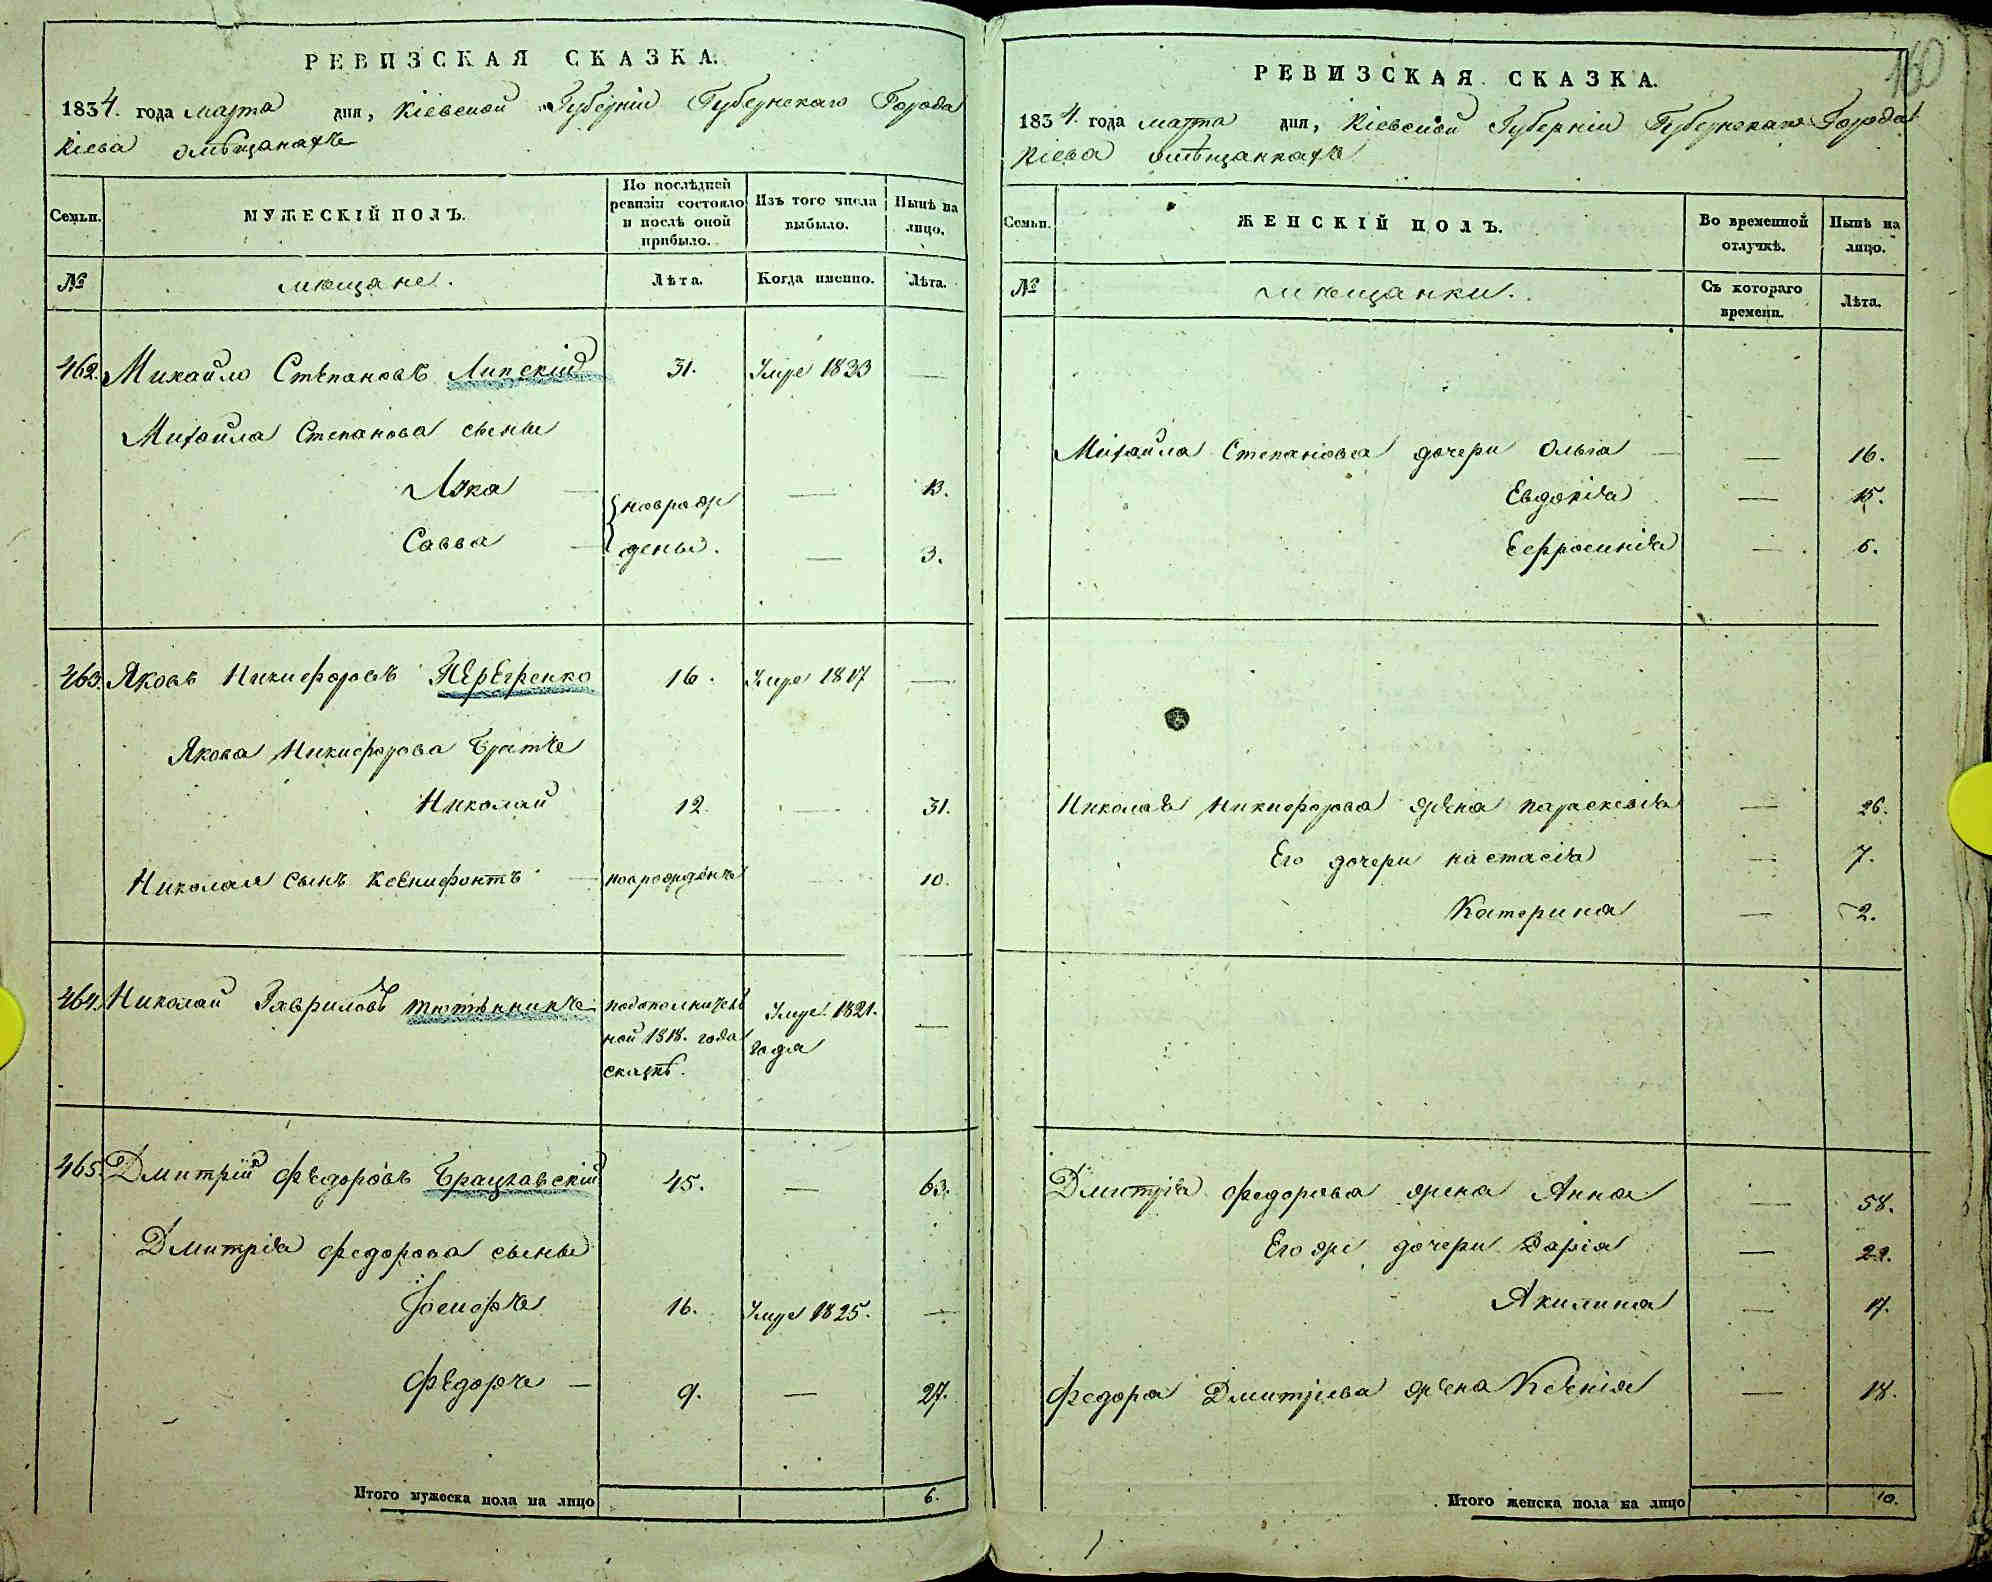 РЕВИЗСКАЯ СКАЗКА.
1834. года марта дня, Кіевской Губерніи Губернскаго Города
Кіева о мѣщанахъ
Семьи. МУЖЕСКІЙ ПОЛЪ. По послѣдней ревизіи состояло и послѣ оной прибыло. Изъ того числа выбыло. Нынѣ на лицо.
№ мѣщане. Лѣта. Когда именно. Лѣта.
462. Михайло Степановъ Липскій 31. Умре 1833 —
Михайла Степанова сыны
Лука — новрож — 13.
Савва — дены. — 3.
463. Яковъ Никифоровъ 16. Умре 1817 —
Якова Никифорова братъ
Николай 12. — 31.
Николая сынъ Ксенифонтъ — новрожденъ — 10.
464. Николай Гавриловъ Тютюнникъ по дополнитель Умре 1821. —
ной 1818. года года
сказкѣ.
465. Дмитрій Федоровъ Брацлавскій 45. — 63.
Дмитрія Федорова сыны
Іосифъ 16. Умре 1825. —
Федоръ — 9. — 27.
Итого мужеска пола на лицо 6.
РЕВИЗСКАЯ СКАЗКА.
1834. года марта дня, Кіевской Губерніи Губернскаго Города
Кіева о мѣщанкахъ
Семьи. ЖЕНСКІЙ ПОЛЪ. Во временной отлучкѣ. Нынѣ на лицо.
№ мѣщанки. Съ котораго времени. Лѣта.
Михайла Степанова дочери Ольга — — 16.
Евдокія — 15.
Ефросинія — 6.
Николая Никифорова жена Параскевія — 26.
Его дочери Настасія — 7.
Катерина — 2.
Дмитрія Федорова жена Анна — 58.
Его же дочери Дарія — 22.
Акилина — 17.
Федора Дмитріева жена Ксенія — 18.
Итого женска пола на лицо 10.